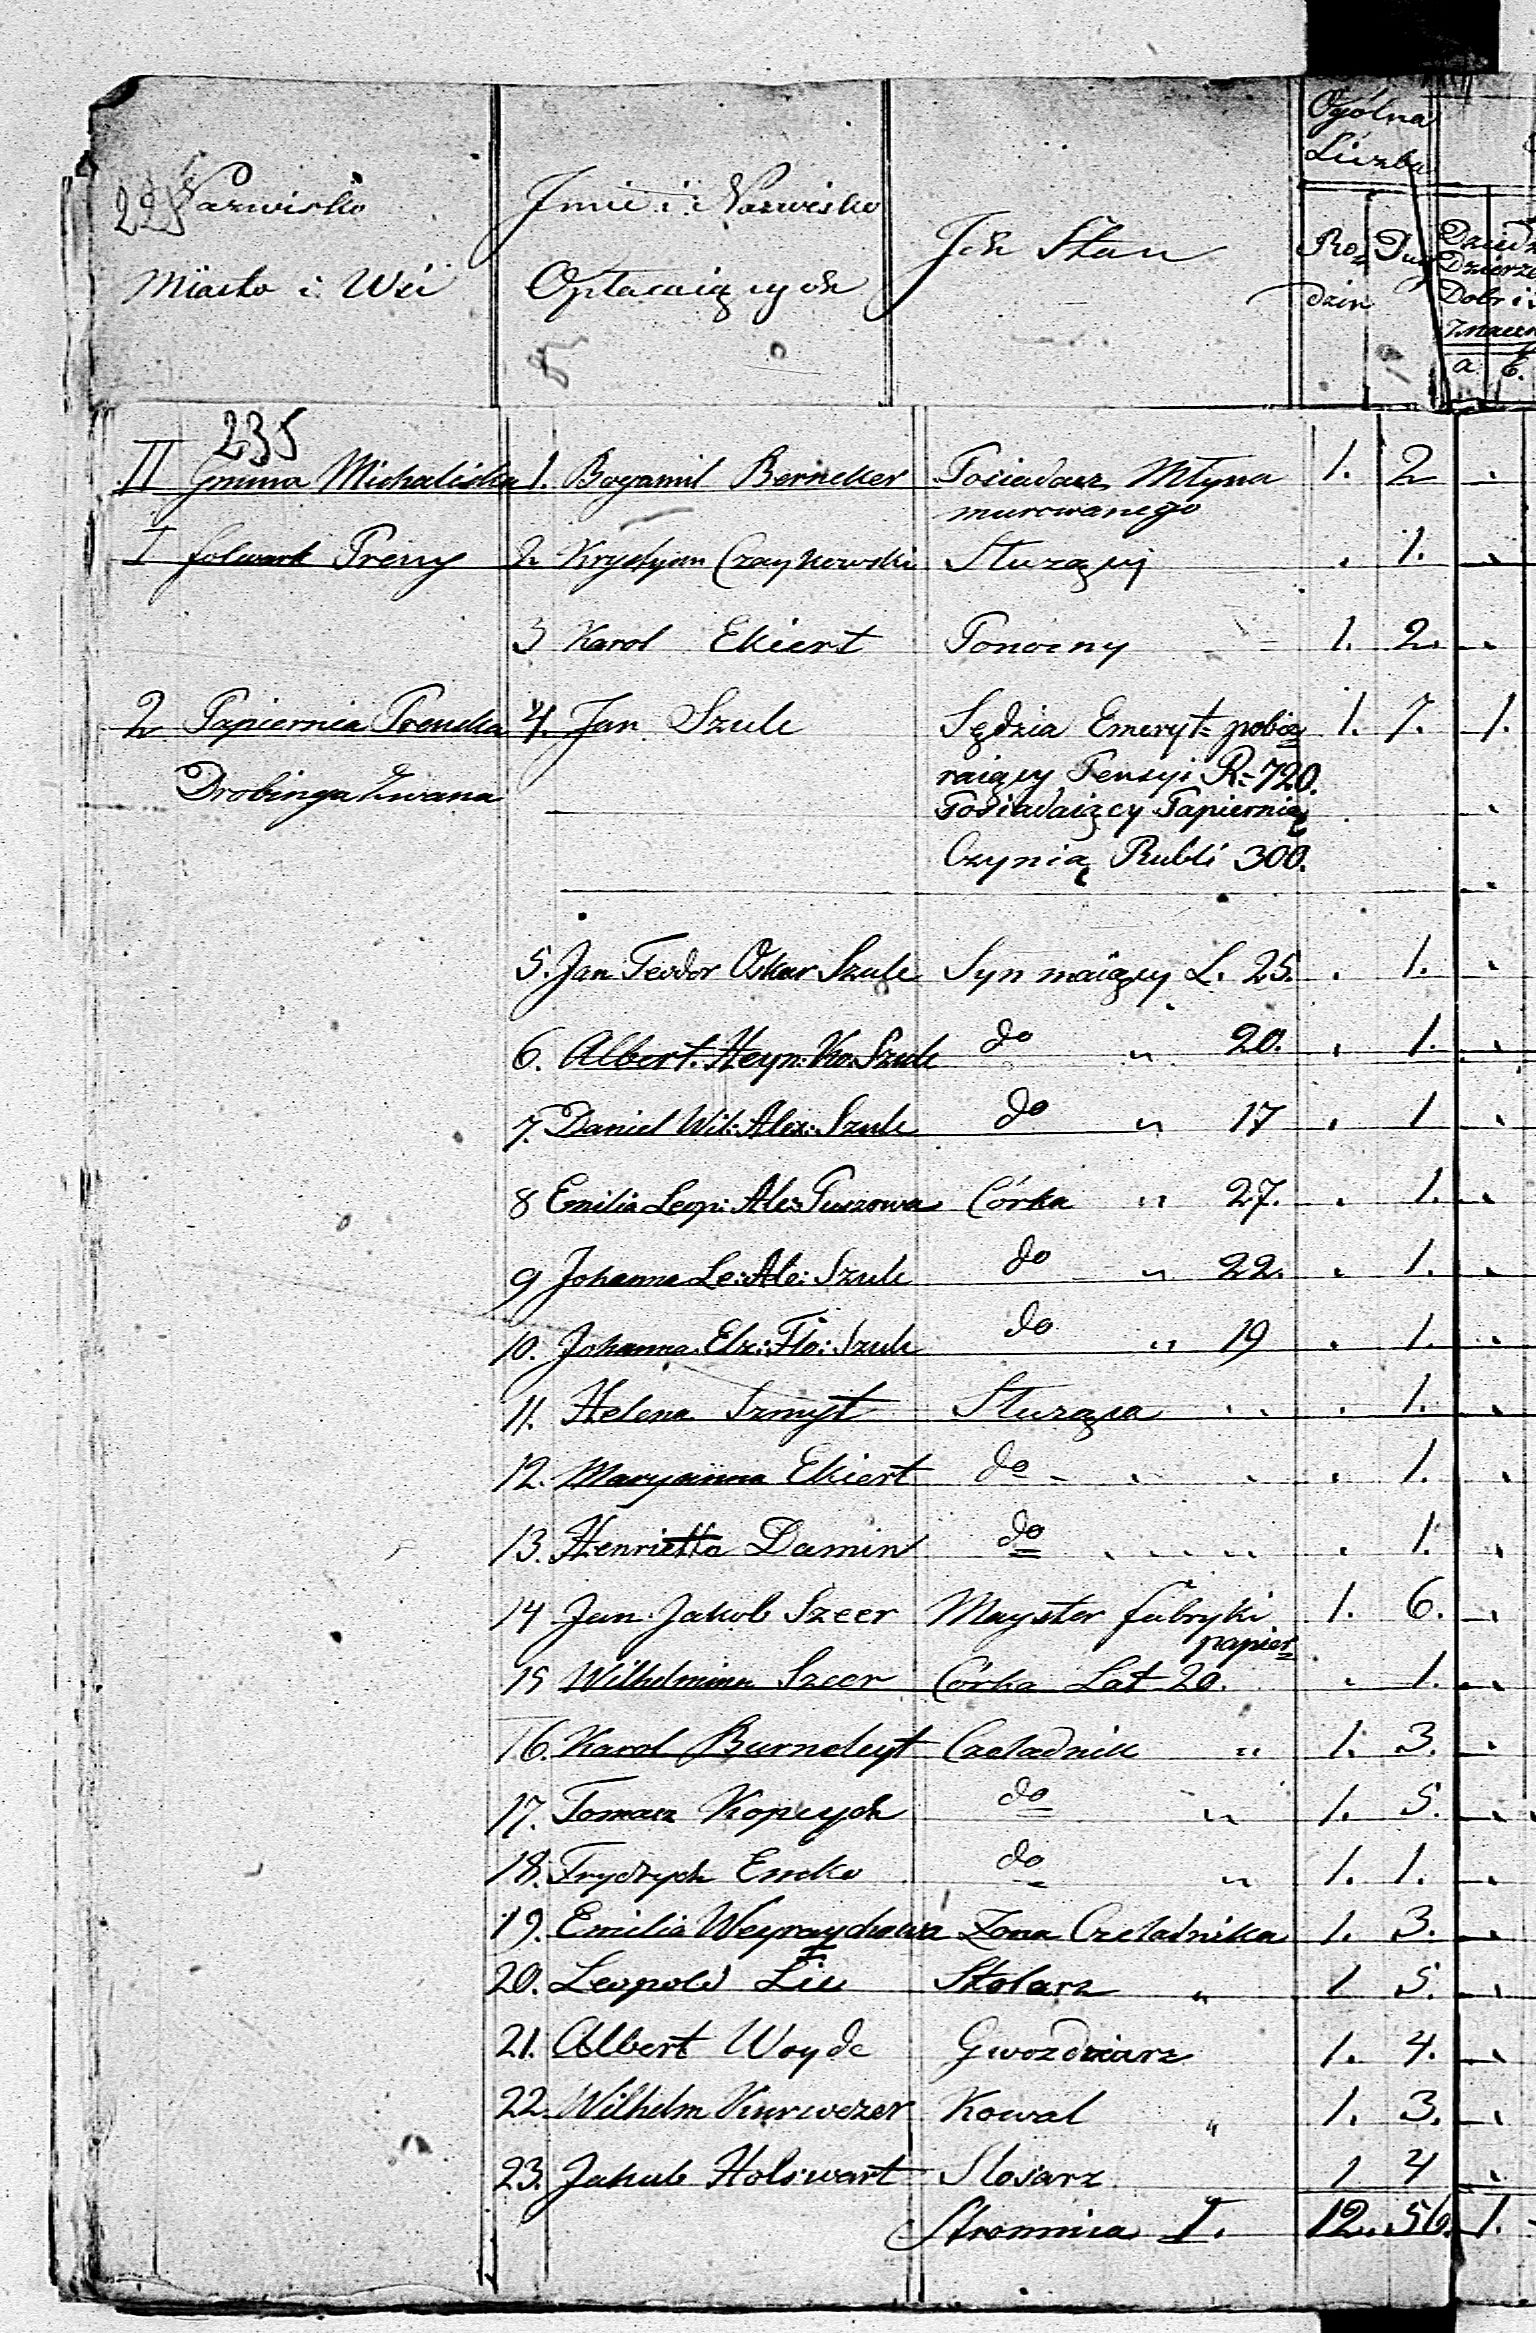 225 Nazwisko
Miasto i Wsi
Jmie i Nazwisko
Opłacaiących
Jch Stan
Ogólna
Liczba
Ro=
dzin
Dusz
a. b.
235
II Gmina Michaliska 1. Bogumil Berneker Posiadacz Młyna 1. 2
murowanego
I folwark Preny 2 Krystyan Czaykowski Służący . 1.
3 Karol Ekiert Ponocny 1. 2.
2 Papiernia Prenska 4. Jan Szulc Sędzia Emeryt pobie= 1. 7. 1.
Drobinga zwana raiący Pensyi R= 720.
Posiadaiący Papiernią
Czynią Rubli 300.
5. Jan Teodor Oskar Szulc Syn maiący L. 25. . 1.
6. Albert Heyn: Ko. Szulc do " 20. . 1.
7. Daniel Wil: Alex: Szulc do " 17 . 1
8 Emilia Leop: Ale: Puszowa Córka " 27. . 1.
9 Johanna Le: Ale: Szulc do " 22. . 1.
10. Johanna Elz: Flo: Szulc do " 19 . 1.
11. Helena Szmyt Służąca . 1.
12. Maryanna Ekiert do . 1.
13. Henrietta Damin do . 1.
14 Jan Jakob Szeer Mayster fabryki 1. 6.
papier=
15 Wilhelmina Szeer Córka Lat 20. . 1.
16. Karol Burndeyt Czeladnik " 1. 3.
17. Tomasz Kopcych do " 1. 5.
18. Frydrych Encke do " 1. 1.
19. Emilia Weyraychowa Żona Czeladnika 1. 3.
20. Leopold Lic Stolarz " 1 5.
21. Albert Woyde Gwozdziarz 1. 4.
22. Wilhelm Kurwezer Kowal " 1. 3.
23. Jakub Holswart Slosarz 1 4
Stronnica I. 12. 56. 1.